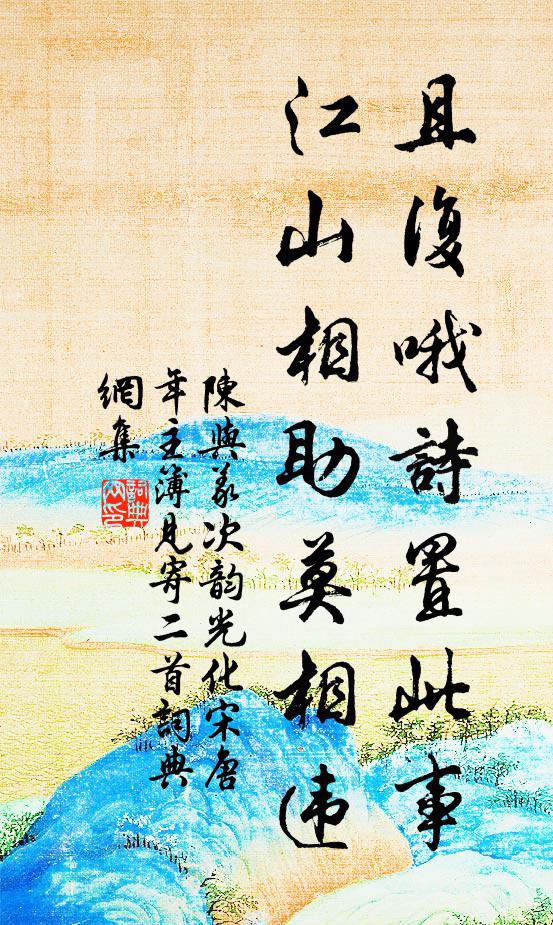 且復哦詩置此事
江山相助莫相违
陳與義次韵光化宋唐
年主薄見寄二首詞典
網集